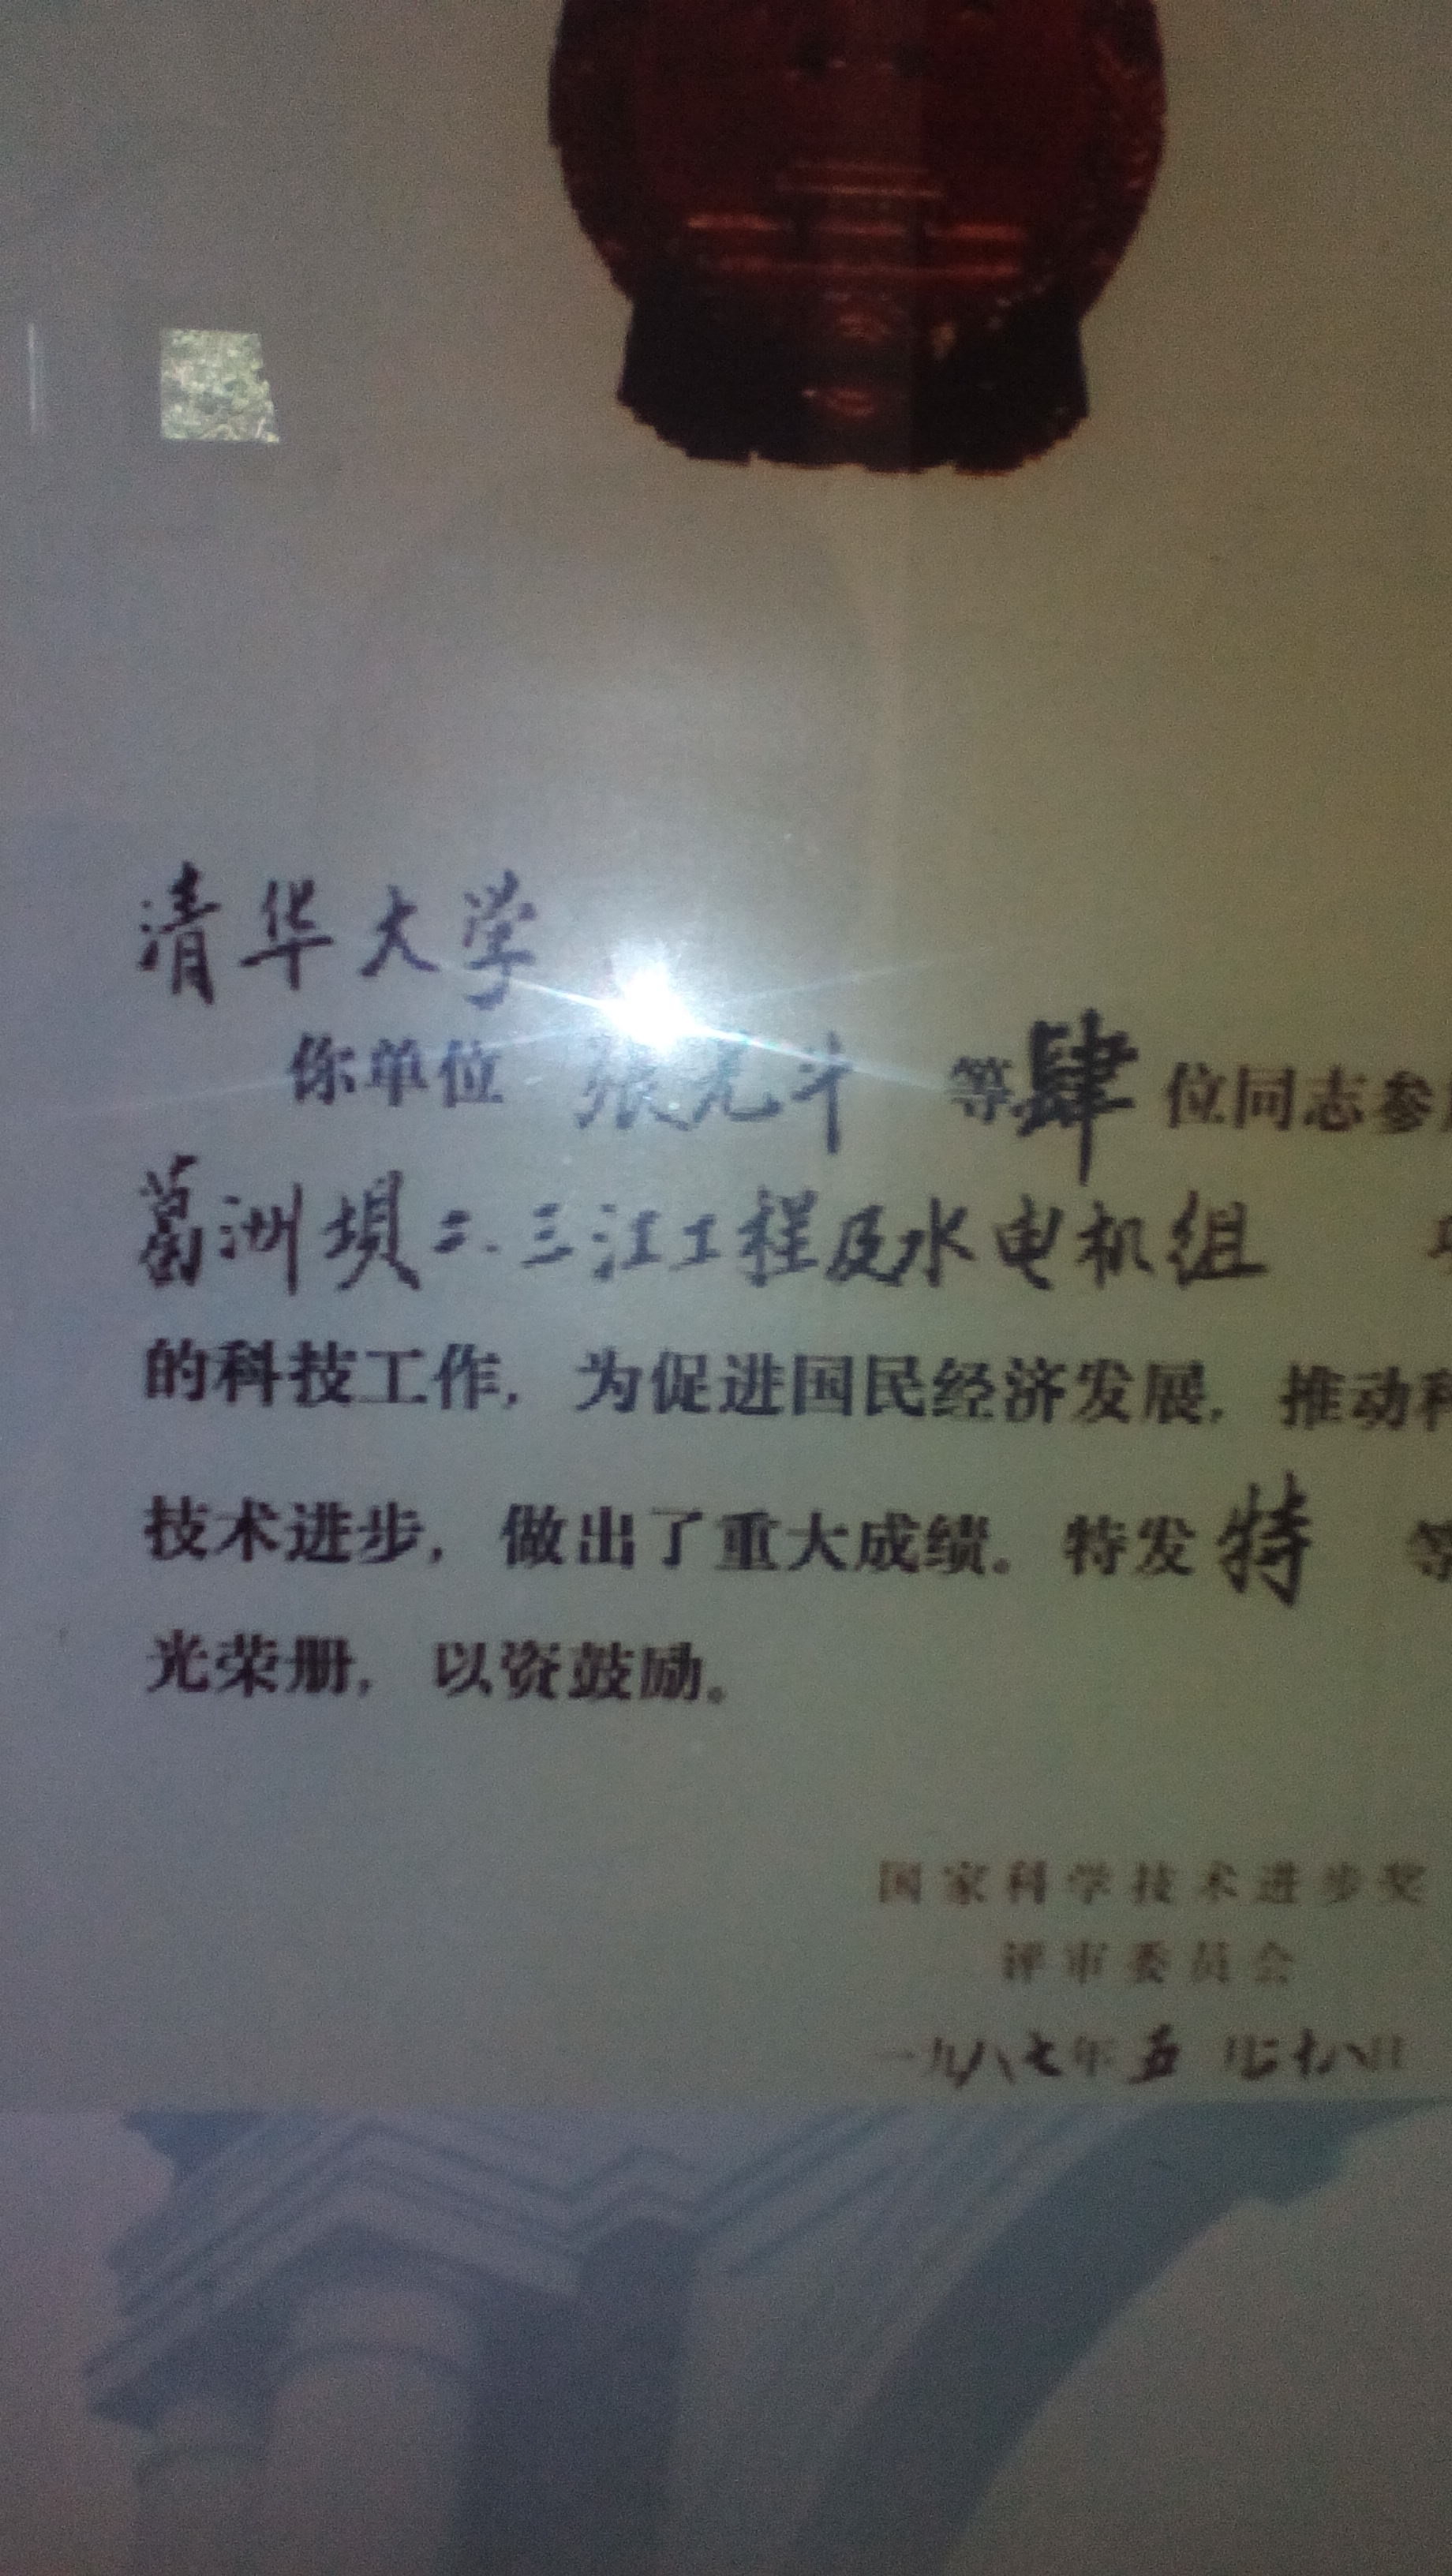 清华大学
你单位 张光斗 等肆位同志参
葛洲坝二、三江工程及水电机组
的科技工作，为促进国民经济发展，推动科
技术进步，做出了重大成绩。特发特 等
光荣册，以资鼓励。
国家科学技术进步奖
评审委员会
一九八七年五月二十八日